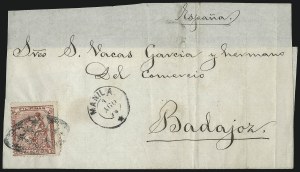 España.
Sres S. Vacas Garcia y hermano
Del Comercio
MANILA
Badajoz.